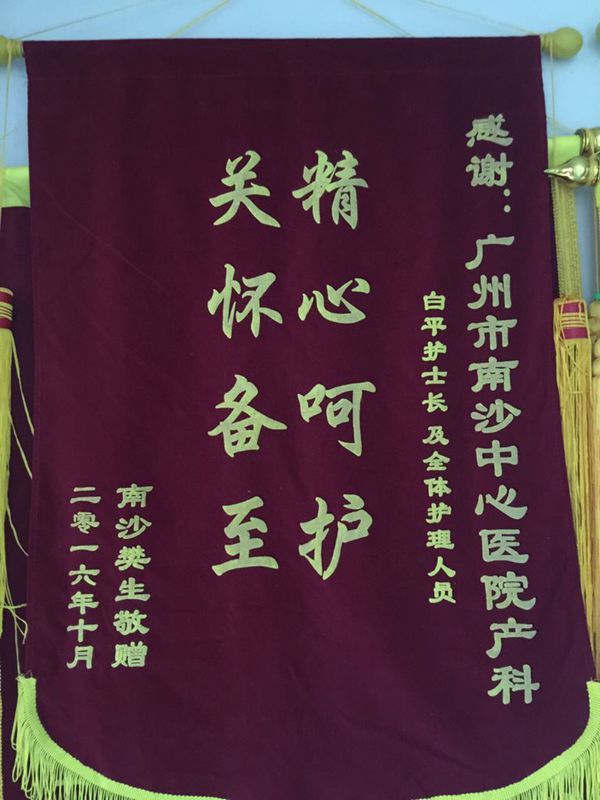 感谢：广州市南沙中心医院产科
白平护士长及全体护理人员
精心呵护
关怀备至
南沙樊生敬赠
二零一六年十月